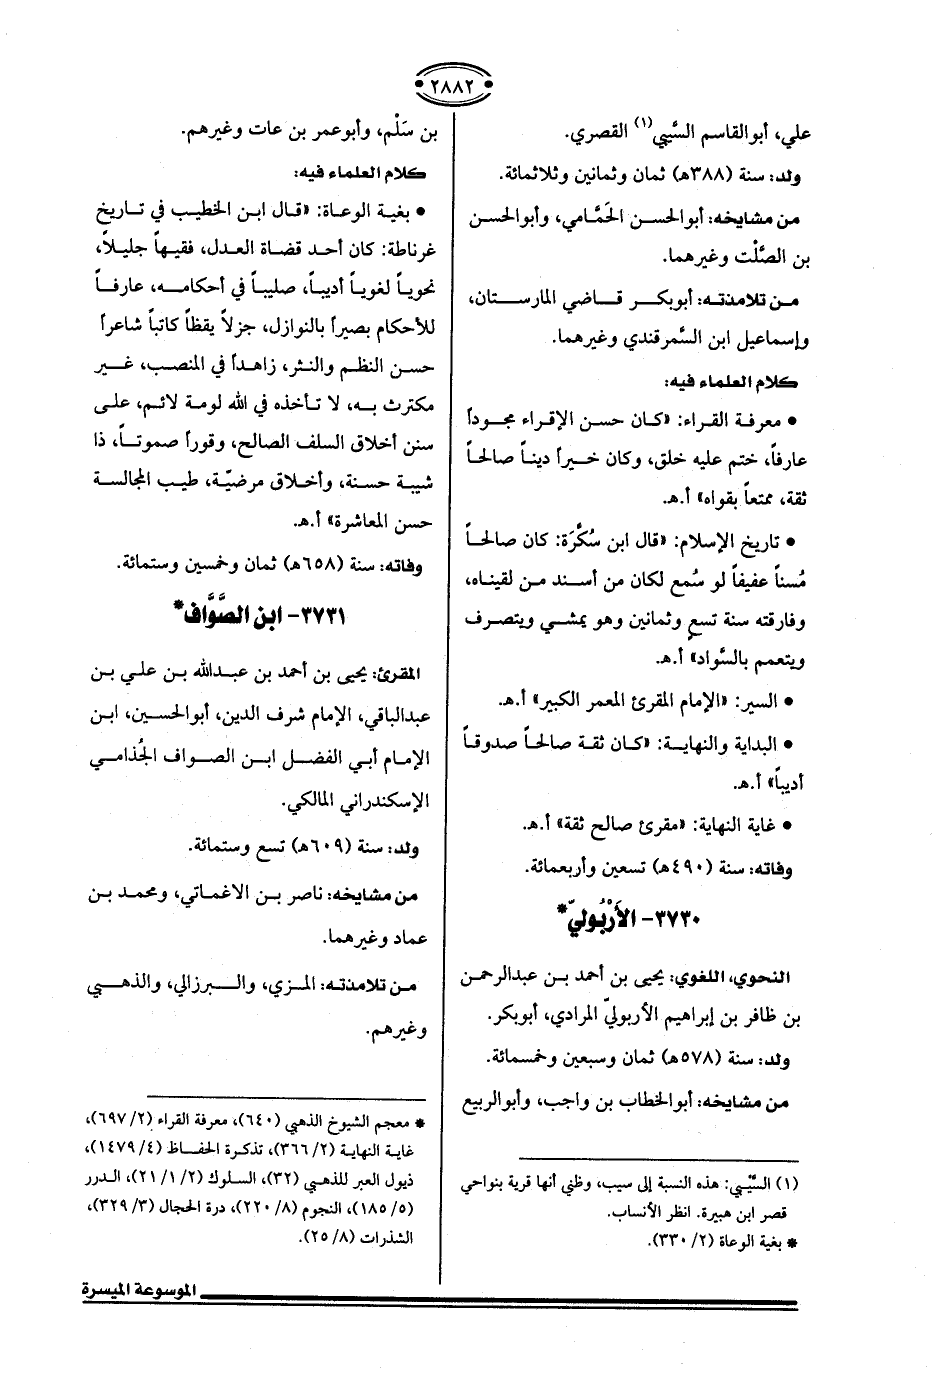 ٢٨٨٢
علي، أبوالقاسم السَّيِبي(١) القصري.
ولد: سنة (٣٨٨هـ) ثمان وثمانين وثلاثمائة.
من مشايخه: أبوالحسن الحَمَّامي، وأبوالحسن
بن الصَّلْت وغيرهما.
من تلامذته: أبوبكر قاضي المارستان،
وإسماعيل ابن السَّمرقندي وغيرهما.
كلام العلماء فيه:
• معرفة القراء: «كان حسن الإقراء مجوداً
عارفاً، ختم عليه خلق، وكان خيراً ديناً صالحاً
ثقة، ممتعاً بقواه» أ.هـ.
• تاريخ الإسلام: «قال ابن سُكَّرَة: كان صالحاً
مُسناً عفيفاً لو سُمع لكان من أسند من لقيناه،
وفارقته سنة تسعٍ وثمانين وهو يمشي ويتصرف
ويتعمم بالسَّواد» أ.هـ.
• السير: «الإمام المقرئ المعمر الكبير» أ.هـ.
• البداية والنهاية: «كان ثقة صالحاً صدوقاً
أديباً» أ.هـ.
• غاية النهاية: «مقرئ صالح ثقة» أ.هـ.
وفاته: سنة (٤٩٠هـ) تسعين وأربعمائة.
٣٧٣٠- الأَرْبُوليّ*
النحوي، اللغوي: يحيى بن أحمد بن عبدالرحمن
بن ظافر بن إبراهيم الأربوليّ المرادي، أبوبكر.
ولد: سنة (٥٧٨هـ) ثمان وسبعين وخمسمائة.
من مشايخه: أبوالخطاب بن واجب، وأبوالربيع
(١) السَّيْبي: هذه النسبة إلى سيب، وظني أنها قرية بنواحي
قصر ابن هبيرة. انظر الأنساب.
* بغية الوعاة (٢/ ٣٣٠).
بن سَلْم، وأبوعمر بن عات وغيرهم.
كلام العلماء فيه:
• بغية الوعاة: «قال ابن الخطيب في تاريخ
غرناطة: كان أحد قضاة العدل، فقيهاً جليلاً،
نحوياً لغوياً أديباً، صليباً في أحكامه، عارفاً
للأحكام بصيراً بالنوازل، جزلاً يقظاً كاتباً شاعراً
حسن النظم والنثر، زاهداً في المنصب، غير
مكترث به، لا تأخذه في الله لومة لائم، على
سنن أخلاق السلف الصالح، وقوراً صموتاً، ذا
شيبة حسنة، وأخلاق مرضيّة، طيب المجالسة
حسن المعاشرة» أ.هـ.
وفاته: سنة (٦٥٨هـ) ثمان وخمسين وستمائة.
٣٧٣١- ابن الصَّوَّاف*
المقرئ: يحيى بن أحمد بن عبدالله بن علي بن
عبدالباقي، الإمام شرف الدين، أبوالحسين، ابن
الإمام أبي الفضل ابن الصواف الجُذامي
الإسكندراني المالكي.
ولد: سنة (٦٠٩هـ) تسع وستمائة.
من مشايخه: ناصر بن الاغماتي، ومحمد بن
عماد وغيرهما.
من تلامذته: المزي، والبرزالي، والذهبي
وغيرهم.
* معجم الشيوخ الذهبي (٦٤٠)، معرفة القراء (٢/ ٦٩٧)،
غاية النهاية (٢/ ٣٦٦)، تذكرة الحفاظ (٤/ ١٤٧٩)،
ذيول العبر للذهبي (٣٢)، السلوك (٢/ ١/ ٢١)، الدرر
(٥/ ١٨٥)، النجوم (٨/ ٢٢٠)، درة الحجال (٣/ ٣٢٩)،
الشذرات (٨/ ٢٥).
الموسوعة الميسرة